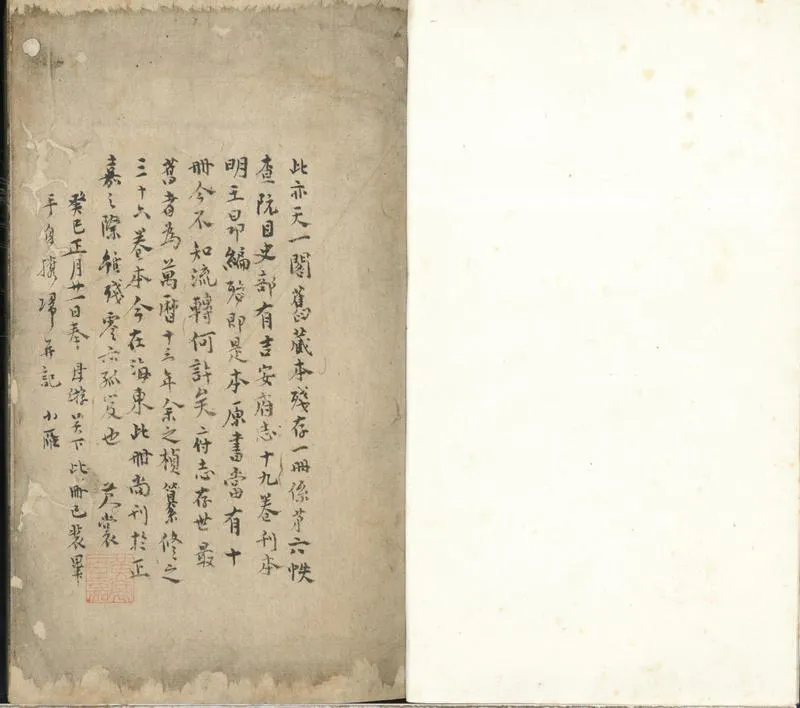 此亦天一閣舊藏本殘存一冊係第六帙
查阮目史部有吉安府志十九卷刊本
明王昂編殆即是本原書當有十
冊今不知流轉何許矣二府志存世最
舊者為萬曆十三年余之楨纂修之
三十六卷本今在海東此冊尚刊於正
嘉之際雖殘零亦孤笈也 黃裳
癸巳正月廿一日奉母游吳下此冊已裝畢
手自攜歸并記 小雁